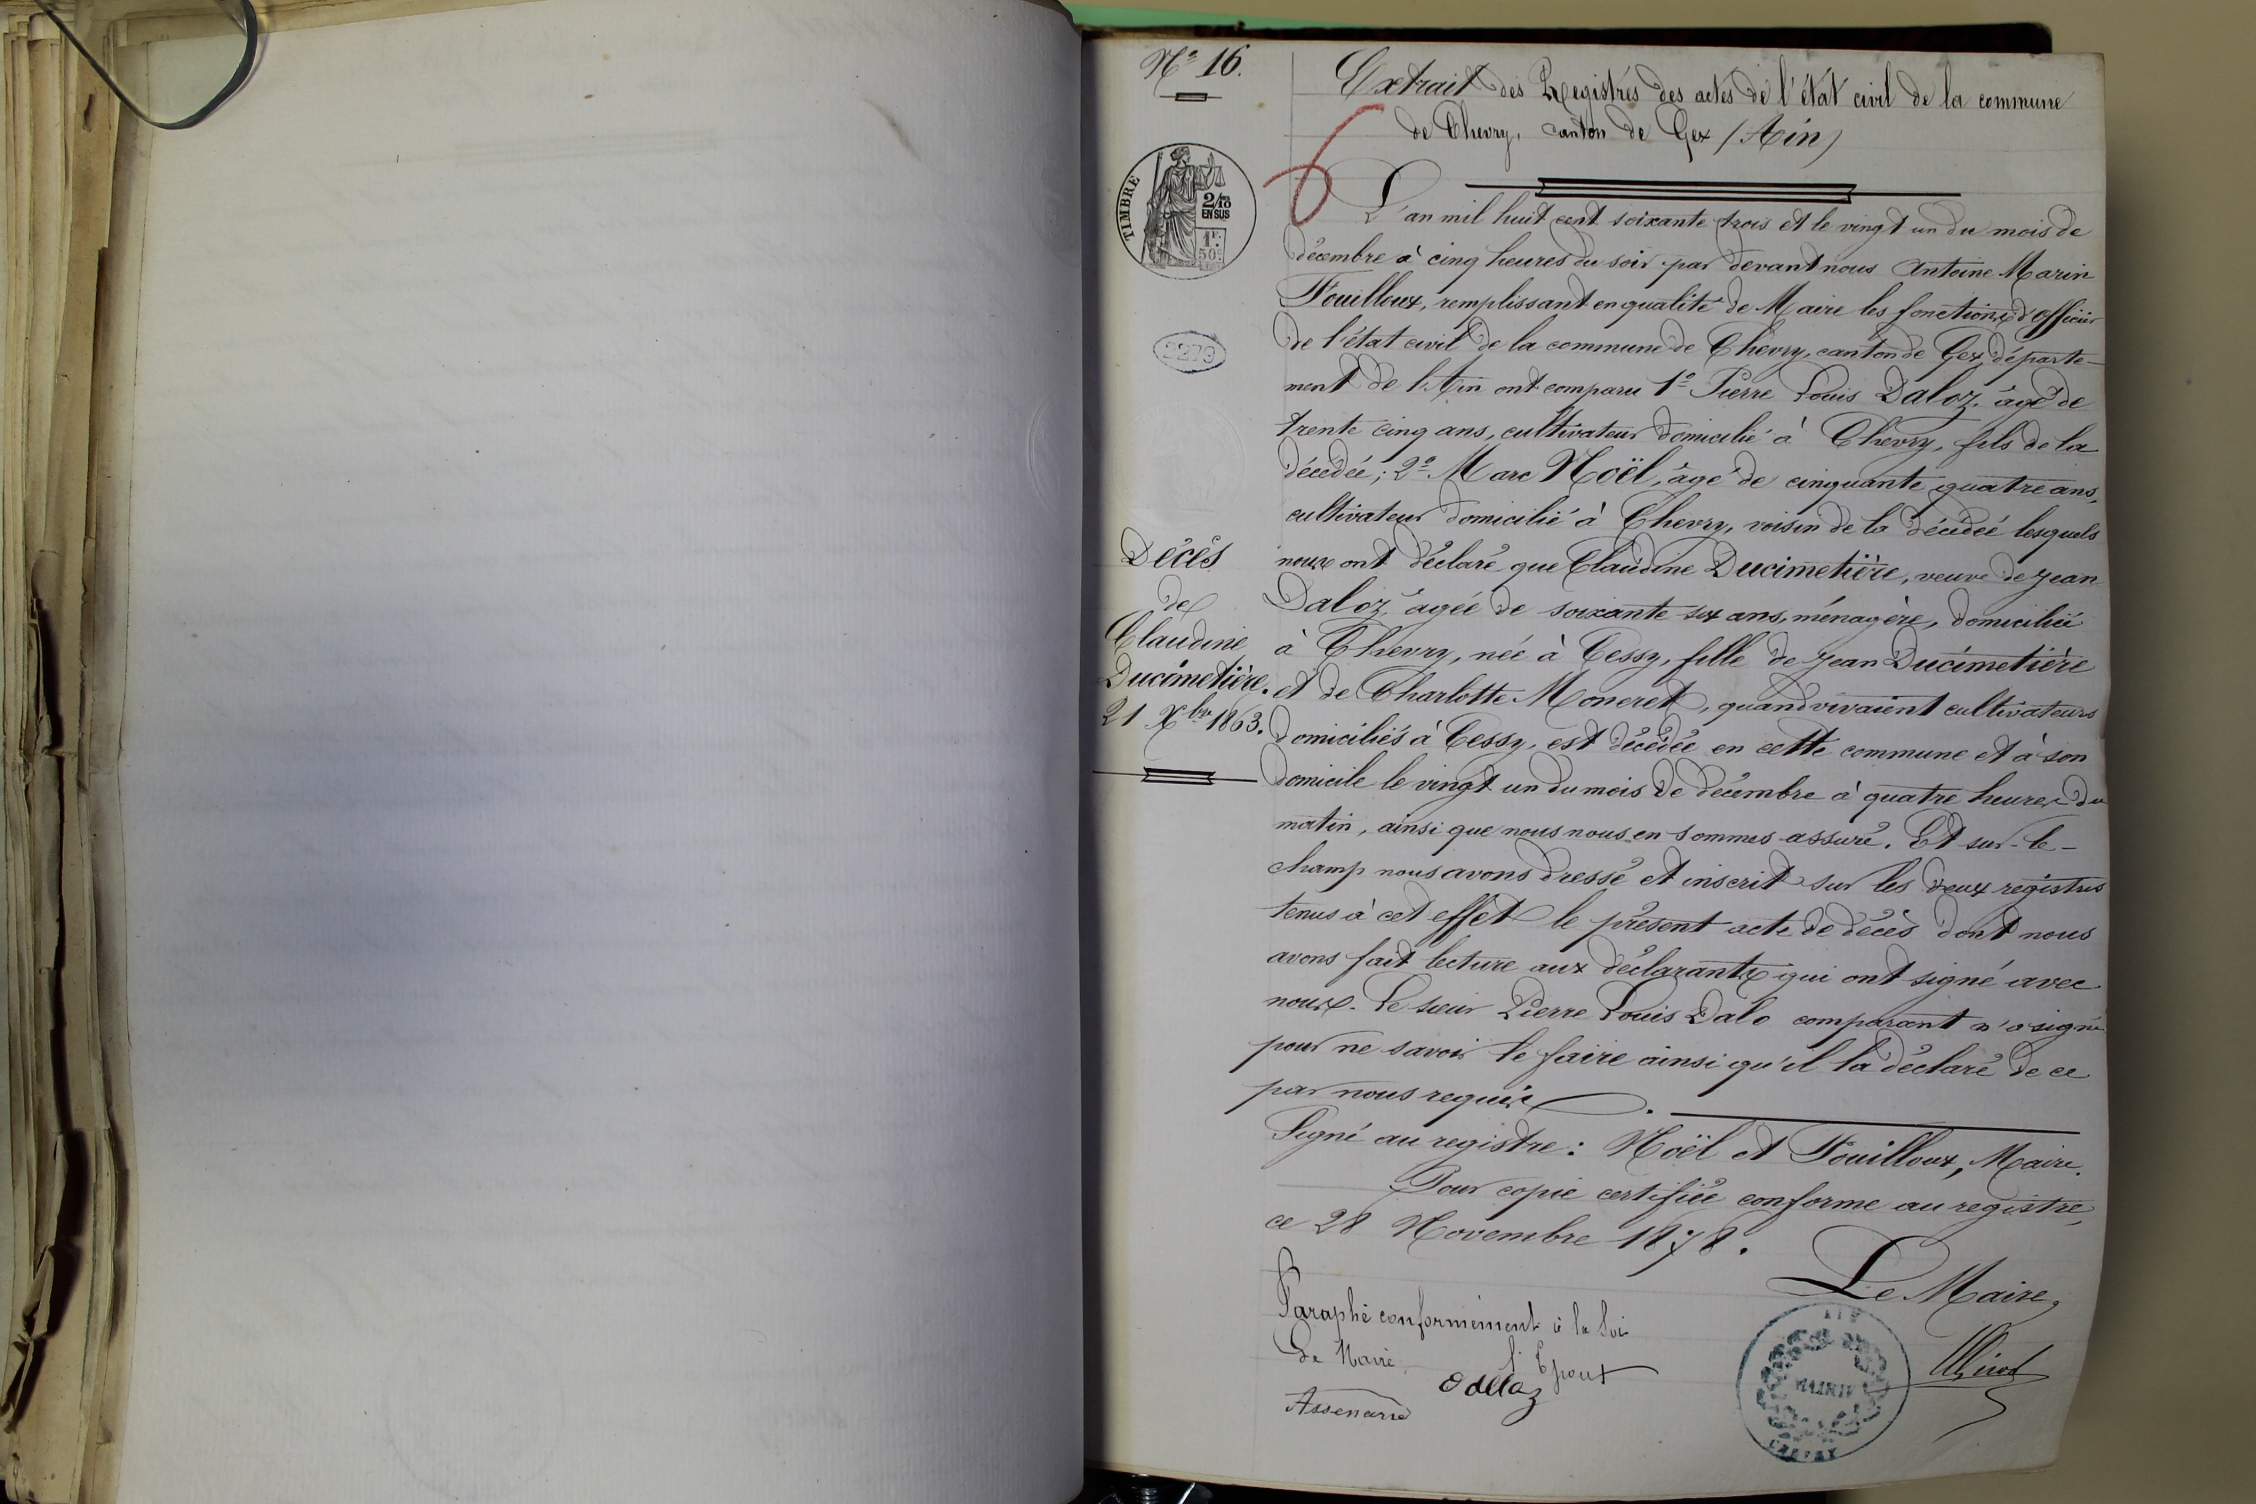 Nº 16.
Extrait des Registres des actes de l'état civil de la commune
de Chevry, canton de Gex (Ain)
TIMBRE
2/10
EN SUS
1F.
50c.
2279
L'an mil huit cent soixante trois et le vingt un du mois de
décembre à cinq heures du soir par devant nous Antoine Marin
Fouilloux, remplissant en qualité de Maire les fonctions d'officier
de l'état civil de la commune de Chevry, canton de Gex, départe-
ment de l'Ain ont comparu 1º Pierre Louis Daloz, âgé de
trente cinq ans, cultivateur domicilié à Chevry, fils de la
décédée; 2º Marc Noël, âgé de cinquante quatre ans,
cultivateur domicilié à Chevry, voisin de la décédée lesquels
nous ont déclaré que Claudine Ducimetière, veuve de Jean
Daloz, âgée de soixante six ans, ménagère, domiciliée
à Chevry, née à Cessy, fille de Jean Ducimetière
et de Charlotte Moneret, quand vivaient cultivateurs
domiciliés à Cessy, est décédée en cette commune et à son
domicile le vingt un du mois de décembre à quatre heures du
matin, ainsi que nous nous en sommes assuré. Et sur-le-
champ nous avons dressé et inscrit sur les deux registres
tenus à cet effet le présent acte de décès dont nous
avons fait lecture aux déclarants qui ont signé avec
nous. Le sieur Pierre Louis Dalo comparant n'a signé
pour ne savoir le faire ainsi qu'il l'a déclaré de ce
par nous requis.
Décès
de
Claudine
Ducimetière.
21 Xbre 1863.
Signé au registre: Noël et Fouilloux, Maire.
Pour copie certifiée conforme au registre,
ce 28 Novembre 1878.
Le Maire,
Paraphé conformément à la loi
AIN
MAIRIE
CHEVRY